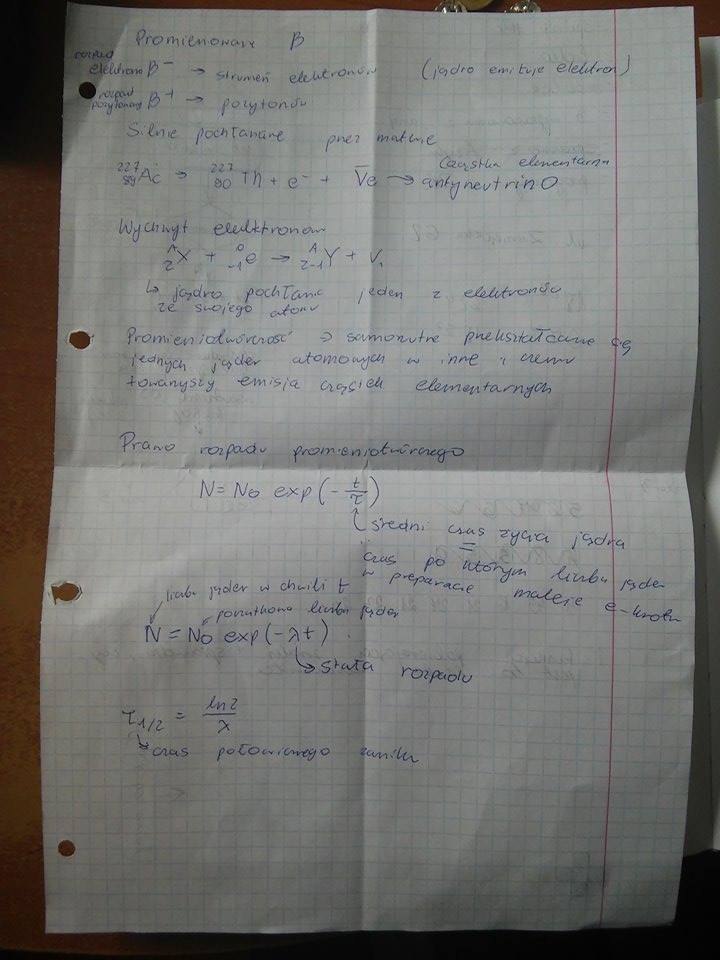 Promieniowanie β
rozpad
elektronowy β⁻ → strumień elektronów (jądro emituje elektron)
rozpad
pozytonowy β⁺ → pozytonów
Silnie pochłaniane przez materię
cząstka elementarna
²²⁷₈₉Ac → ²²⁷₉₀Th + e⁻ + ν̄e → antyneutrino
Wychwyt elektronów
ᴬ₂X + ⁰₋₁e → ᴬ₂₋₁Y + ν,
↳ jądro pochłania jeden z elektronów
ze swojego atomu
Promieniotwórczość → samorzutne przekształcanie się
jednych jąder atomowych w inne, czemu
towarzyszy emisja cząstek elementarnych
Prawo rozpadu promieniotwórczego
N = N₀ exp(-t/τ)
średni czas życia jądra
=
czas po którym liczba jąder
w preparacie maleje e-krotn
liczba jąder w chwili t
początkowa liczba jąder
N = N₀ exp(-λt)
→ stała rozpadu
τ₁/₂ = ln2/λ
↳ czas połowicznego zaniku